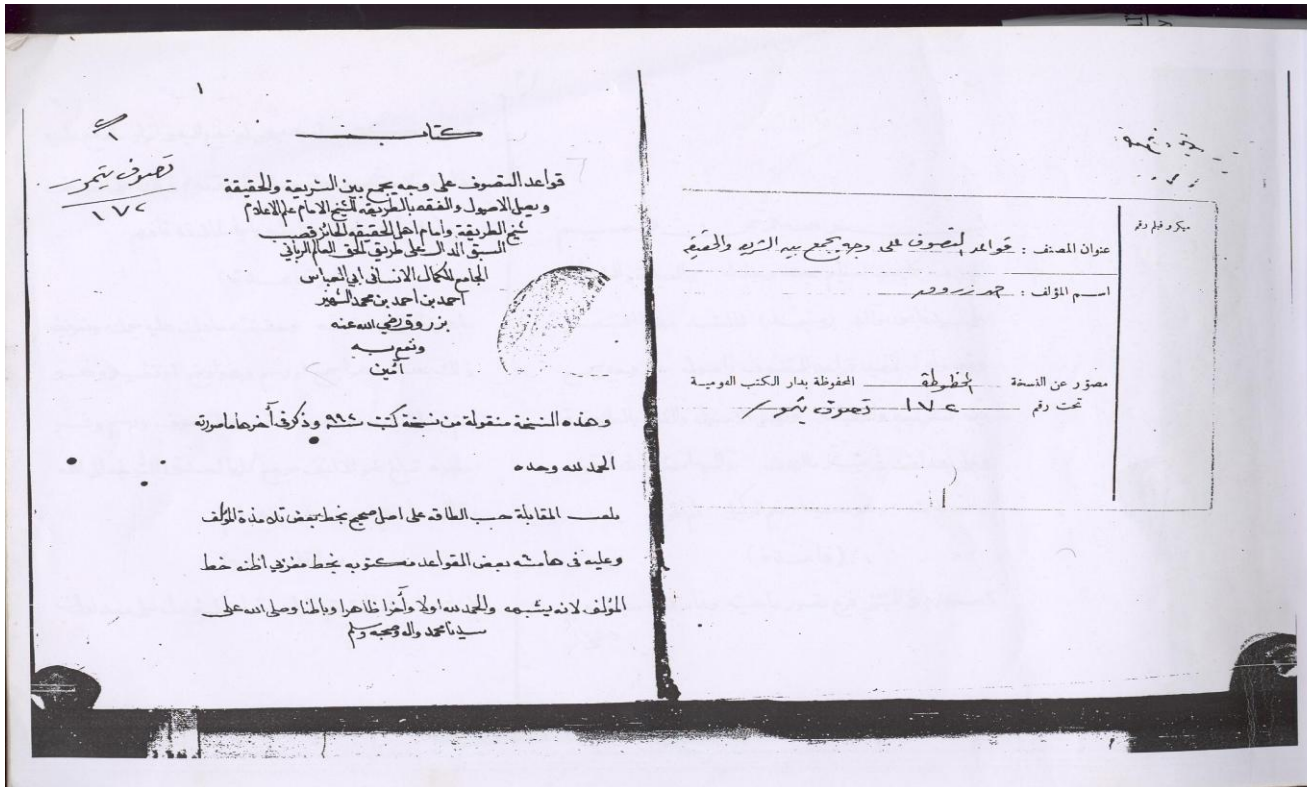 ميكروفيلم رقم
عنوان المصنف : قواعد التصوف على وجه يجمع بين الشريعة والحقيقة
اسم المؤلف : أحمد زروق
مصور عن النسخة المخطوطة المحفوظة بدار الكتب القومية
تحت رقم ١٧٢ تصوف تيمور
١
كتاب
تصوف تيمور
١٧٢
قواعد التصوف على وجه يجمع بين الشريعة والحقيقة
ويصل الاصول والفقه بالطريقة للشيخ الامام علم الاعلام
شيخ الطريقة وامام اهل الحقيقة الحائز قصب
السبق الدال على طريق الحق العالم الرباني
الجامع للكمال الانساني ابي العباس
احمد بن احمد بن محمد الشهير
بزروق رضي الله عنه
ونفع به
آمين
وهذه النسخة منقولة من نسخة كتبت سنة ٩٩٢ وذكر في آخرها ما صورته
الحمد لله وحده
بلغت المقابلة حسب الطاقه على اصل صحيح بخط بعض تلامذة المؤلف
وعليه في هامشه بعض القواعد مكتوبه بخط مغربي اظنه خط
المؤلف لانه يشبهه والحمد لله اولا وآخرا ظاهرا وباطنا وصلى الله على
سيدنا محمد واله وصحبه وسلم